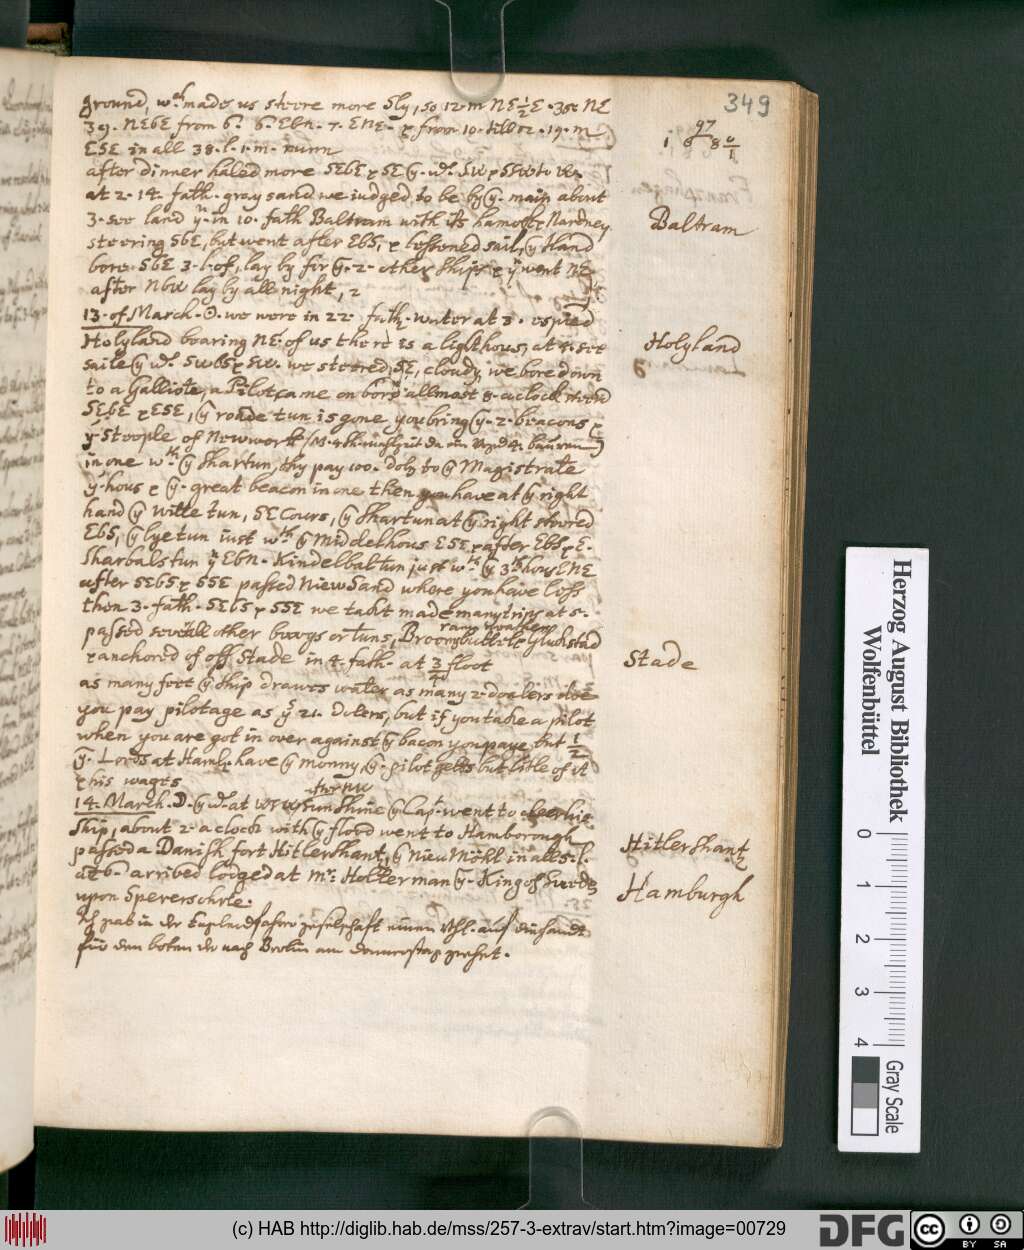 349
ground, wch made us steere more Sly, so 12. m NE½E. 3 so NE
39. NEbE from 6. 6. Ebn. 7. ENE. & from 10. till 12. 19. m
ESE in all 38. l. 1. m. runn
after dinner haled more SEbE & SE ye wd. SW & SSW to W.
at 2. 14. fath. gray sand we iudged to be by ye main about
3. see land yn in 10. fath Baltram with its hamock, Nardney
Baltram
steering SbE, but went after EbS, & lessened sail, ye Iland
bore SbE 3. l. of, lay by for ye 2. other ships & yn went NE
after NbW lay by all night,
13. of March. ☉. we were in 22 fath. water at 3. espied
Holyland bearing NE of us there is a light hous, at
Holyland
saile ye wd. SWbS & SW. we steered SE, cloudy, we bore down
to a Galliote, a Pilot came on bord allmost 8. aclock steerd
SEbE & ESE, ye roade tun is gone you bring ye 2. beacons &
ye Steeple of Newwerk
in one wth ye Shartun, thy pay 100. dolr to ye Magistrate
ye hous & ye great beacon in one then you have at ye right
hand ye Witte tun, SE Cours, ye Shartun at ye right steered
EbS, ye lye tun iust wth ye Middelhous ESE & after EbS & E.
Sharbals tun yn EbN. Kindelbaltun just wth ye 3th hous ENE
after SEbS & SSE passed Niew Sand where you have less
then 3. fath. SEbS & SSE we takt made many trips at 5.
passed severall other buoys or Tuns, Broomsbuttel & Gluckstad
& anchored of off Stade in 4. fath. at ¾ floot
Stade
as many foot ye ship drawes water as many 2 doalers doe
you pay pilotage as yn 21. Dolers, but if you take a pilot
when you are got in over against ye bacon you paye but ½
ye Lords at Hamb. have ye monny, ye pilot getts but litle of it
& his wages
14. March. ☽. ye wd. at W Sun Shine ye Capt. went to cleer his
Ship, about 2. a clock with ye flood went to Hamborough
passed a Danish fort Hitlershantz, ye Nieu Mohl in all 5. l.
Hitlershantz
at 6. arrived lodged at Mr. Holterman ye King of Sweeds
Hamburgh
upon Speresohrte.
Ich gab in der Englandfahrer geselschaft einen Rthl.
für den boten der nach Berlin am donnerstag gehet.
Herzog August Bibliothek
Wolfenbüttel
0 1 2 3 4
Gray Scale
(c) HAB http://diglib.hab.de/mss/257-3-extrav/start.htm?image=00729
DFG
cc BY SA